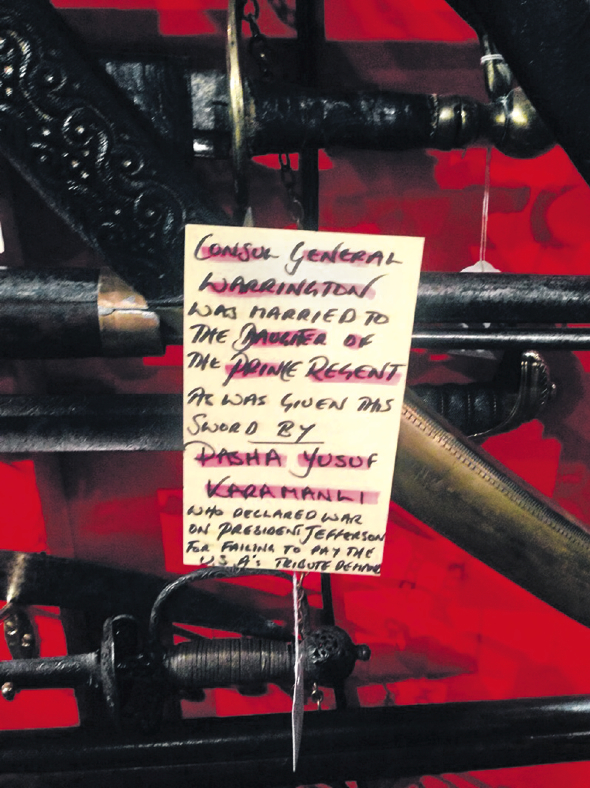 CONSUL GENERAL
WARRINGTON
WAS MARRIED TO
THE DAUGHTER OF
THE PRINCE REGENT
AS WAS GIVEN THIS
SWORD BY
PASHA YUSUF
KARAMANLI
WHO DECLARED WAR
ON PRESIDENT JEFFERSON
FOR FAILING TO PAY THE
U.S.A's TRIBUTE DEMAND